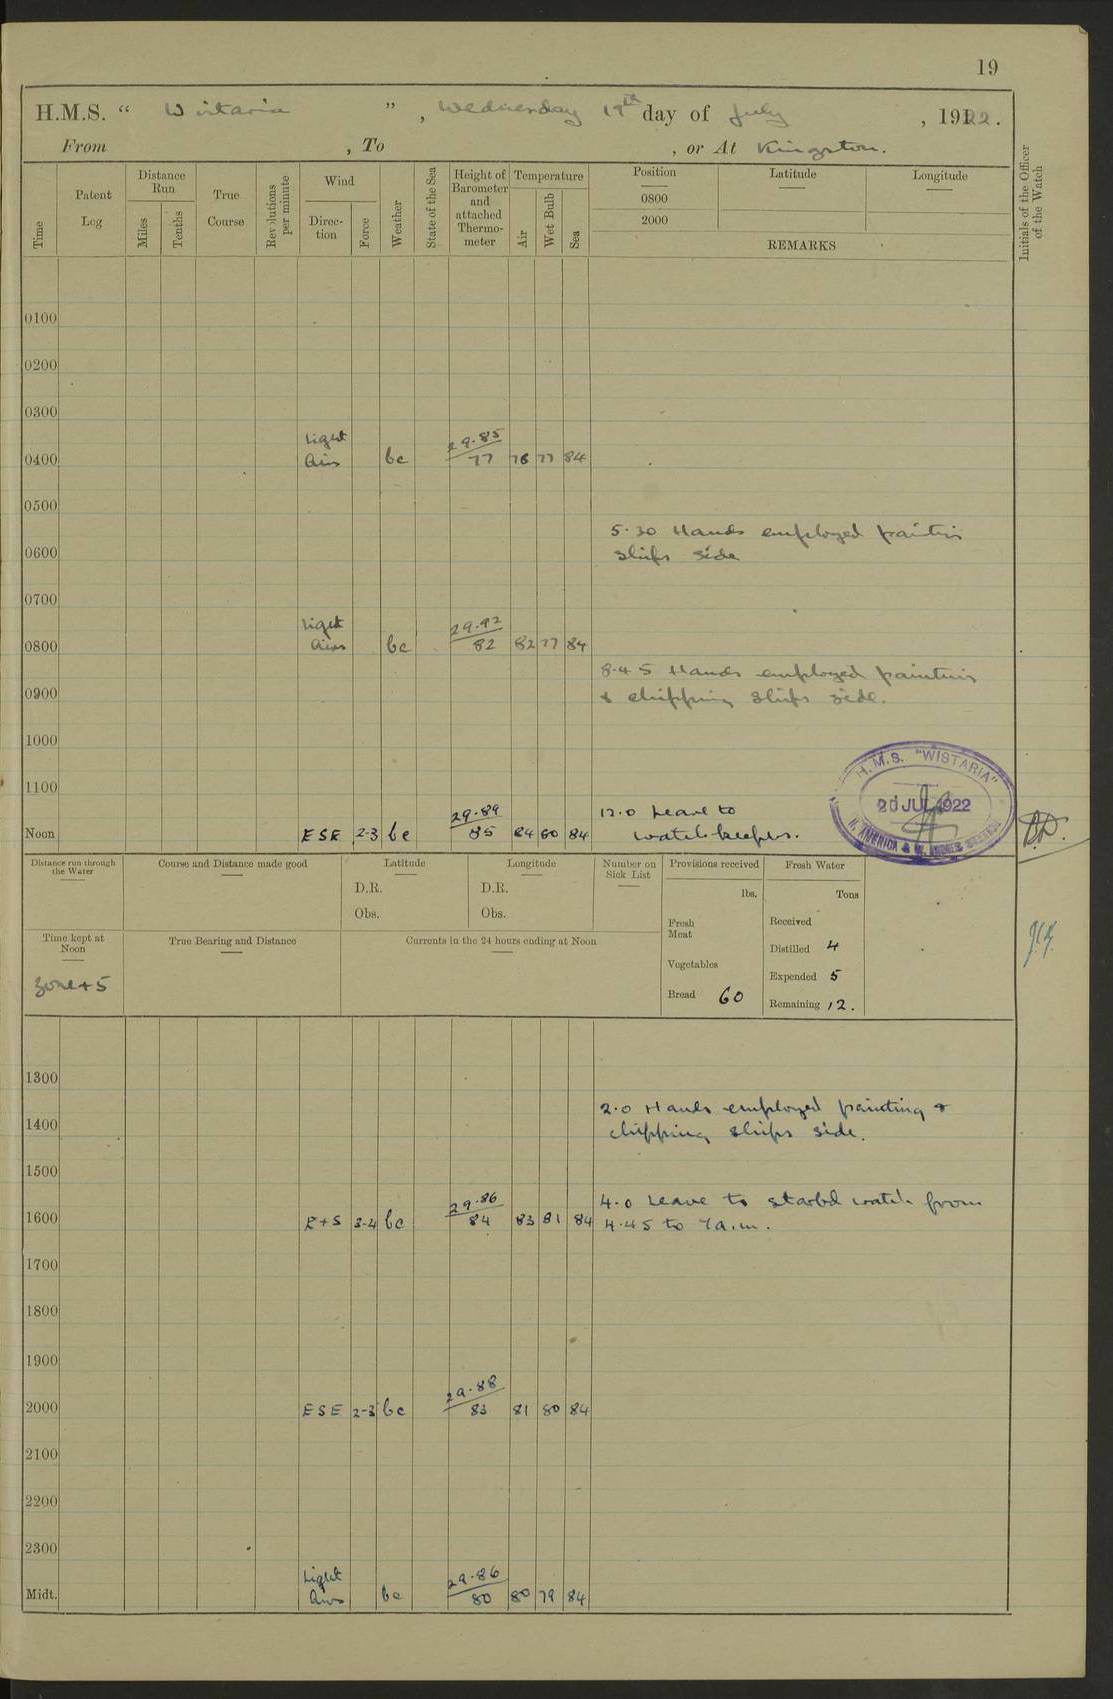 19
H.M.S. “ Wistaria ”, Wednesday 19th day of July, 1922.
From , To , or At Kingston.
Time
Patent Log
Distance Run
Miles
Tenths
True Course
Revolutions per minute
Wind
Direction
Force
Weather
State of the Sea
Height of Barometer and attached Thermometer
Temperature
Air
Wet Bulb
Sea
Position
0800
2000
Latitude
Longitude
REMARKS
Initials of the Officer of the Watch
0100
0200
0300
Light 29.85
0400 Airs bc 77 78 77 84
0500
5.30 Hands employed paintin
0600 ships side
0700
Light 29.92
0800 Airs bc 82 82 77 84
8.45 Hands employed paintin
0900 & chipping ships side.
1000
H.M.S. "WISTARIA"
20 JUL 1922
N. AMERICA & W. INDIES
1100
29.89 12.0 Leave to
Noon ESE 2-3 bc 85 84 80 84 watchkeepers.
Distance run through the Water
Course and Distance made good
Latitude
D.R.
Obs.
Longitude
D.R.
Obs.
Number on Sick List
Provisions received
lbs.
Fresh Meat
Vegetables
Bread 60
Fresh Water
Tons
Received
Distilled 4
Expended 5
Remaining 12.
Time kept at Noon
Zone +5
True Bearing and Distance
Currents in the 24 hours ending at Noon
1300
2.0 Hands employed painting &
1400 chipping ships side.
1500
29.86 4.0 Leave to starbd watch from
1600 E+S 3-4 bc 84 83 81 84 4.45 to 7a.m.
1700
1800
1900
29.88
2000 ESE 2-3 bc 83 81 80 84
2100
2200
2300
Light 29.86
Midt. Airs bc 80 80 79 84